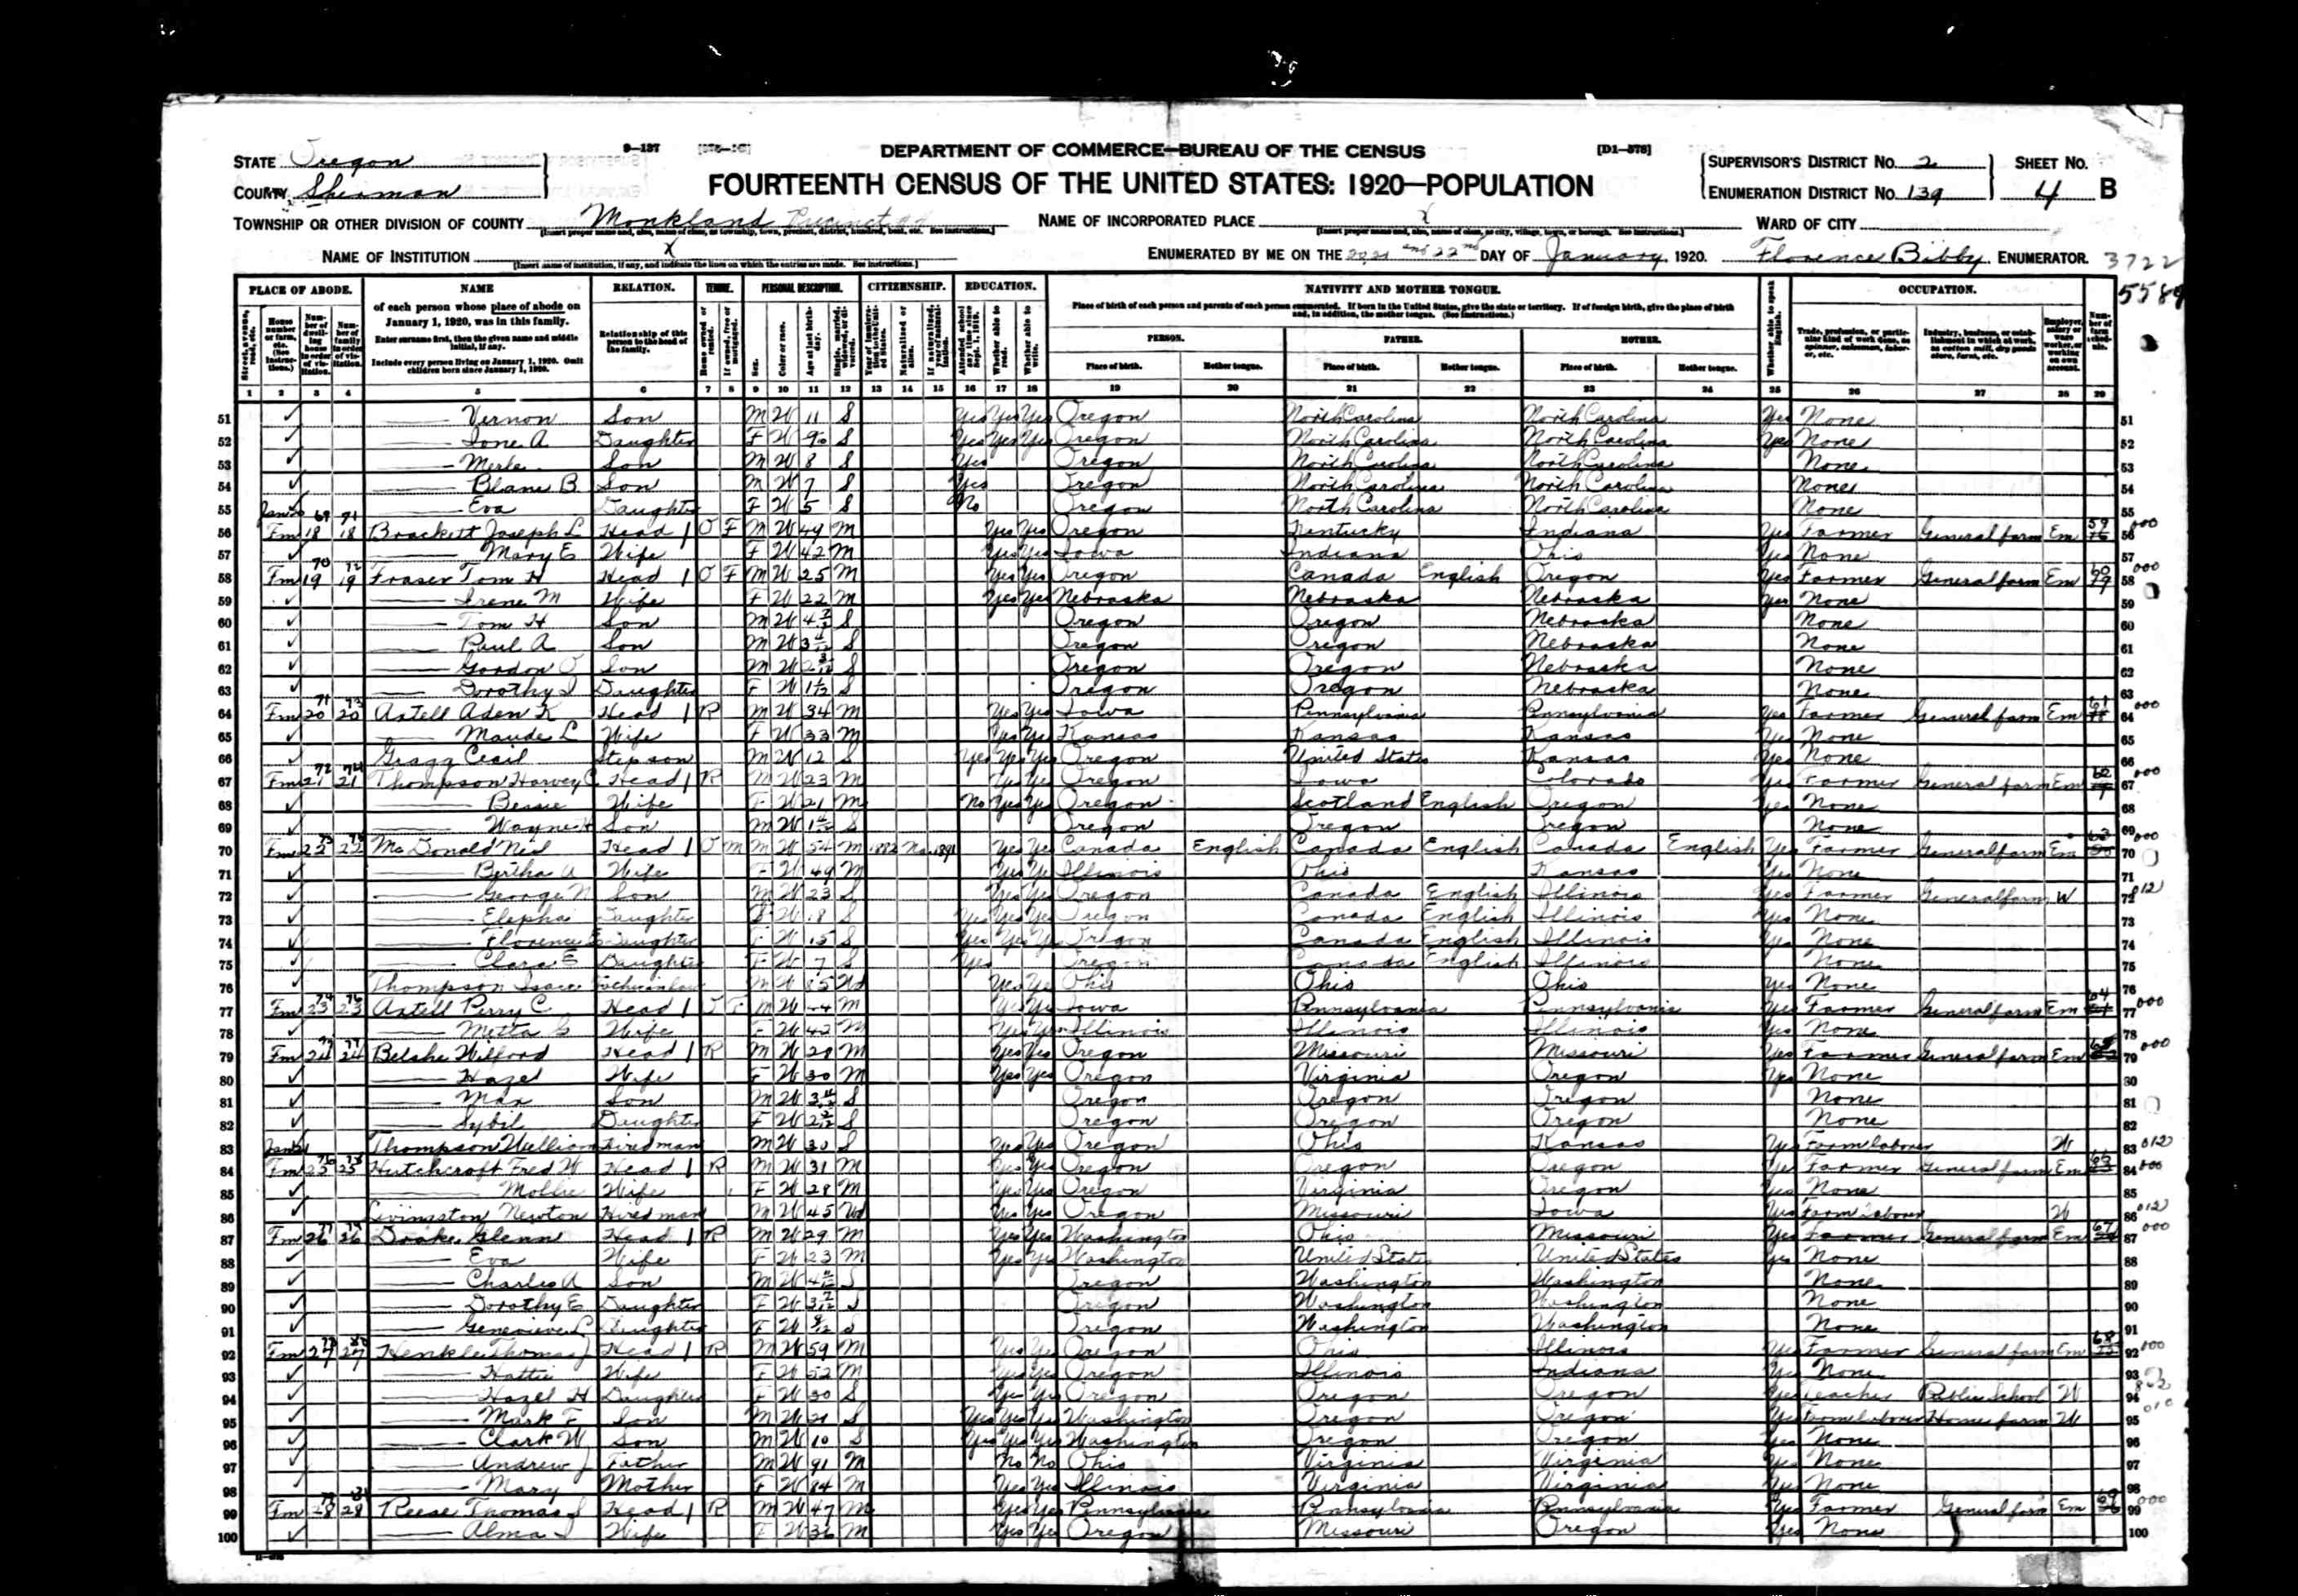 9-137
DEPARTMENT OF COMMERCE—BUREAU OF THE CENSUS
[D1-378]
STATE Oregon
COUNTY Sherman
FOURTEENTH CENSUS OF THE UNITED STATES: 1920—POPULATION
SUPERVISOR'S DISTRICT No. 2
ENUMERATION DISTRICT No. 139
SHEET No. 4 B
TOWNSHIP OR OTHER DIVISION OF COUNTY Monkland Precinct
NAME OF INCORPORATED PLACE X
WARD OF CITY
NAME OF INSTITUTION X
ENUMERATED BY ME ON THE 20, 21 and 22nd DAY OF January, 1920. Florence Bibby, ENUMERATOR. 3722
5589
PLACE OF ABODE. NAME RELATION. TENURE. PERSONAL DESCRIPTION. CITIZENSHIP. EDUCATION. NATIVITY AND MOTHER TONGUE. OCCUPATION.
of each person whose place of abode on January 1, 1920, was in this family.
Enter surname first, then the given name and middle initial, if any.
Include every person living on January 1, 1920. Omit children born since January 1, 1920.
Relationship of this person to the head of the family.
Place of birth of each person and parents of each person enumerated. If born in the United States, give the state or territory. If of foreign birth, give the place of birth and, in addition, the mother tongue. (See Instructions.)
PERSON. FATHER. MOTHER.
Place of birth. Mother tongue. Place of birth. Mother tongue. Place of birth. Mother tongue.
1 2 3 4 5 6 7 8 9 10 11 12 13 14 15 16 17 18 19 20 21 22 23 24 25 26 27 28 29
51 Vernon Son M W 11 S Yes Yes Yes Oregon North Carolina North Carolina Yes None 51
52 Ione A Daughter F W 9 S Yes Yes Yes Oregon North Carolina North Carolina Yes None 52
53 Merle Son M W 8 S Yes Oregon North Carolina North Carolina None 53
54 Blane B. Son M W 7 S Yes Oregon North Carolina North Carolina None 54
55 Eva Daughter F W 5 S No Oregon North Carolina North Carolina None 55
56 Fm 18 18 Brackett Joseph L Head 1 O F M W 49 M Yes Yes Oregon Kentucky Indiana Yes Farmer General farm Em 56
57 Mary E Wife F W 42 M Yes Yes Iowa Indiana Ohio Yes None 57
58 Fm 19 19 Fraser Tom H Head 1 O F M W 25 M Yes Yes Oregon Canada English Oregon Yes Farmer General farm Em 58
59 Irene M Wife F W 22 M Yes Yes Nebraska Nebraska Nebraska Yes None 59
60 Tom H Son M W S Oregon Oregon Nebraska None 60
61 Paul A Son M W S Oregon Oregon Nebraska None 61
62 Gordon Son M W S Oregon Oregon Nebraska None 62
63 Dorothy Daughter F W S Oregon Oregon Nebraska None 63
64 Fm 20 20 Axtell Aden K Head 1 R M W 34 M Yes Yes Iowa Pennsylvania Pennsylvania Yes Farmer General farm Em 64
65 Maude L Wife F W 33 M Yes Yes Kansas Kansas Kansas Yes None 65
66 Gragg Cecil Stepson M W 12 S Yes Yes Yes Oregon United States Kansas Yes None 66
67 Fm 21 21 Thompson Harvey C Head 1 R M W 23 M Yes Yes Oregon Iowa Colorado Yes Farmer General farm Em 67
68 Bessie Wife F W 21 M No Yes Yes Oregon Scotland English Oregon Yes None 68
69 Wayne H Son M W S Oregon Oregon Oregon None 69
70 Fm 22 22 McDonald Neil Head 1 O M M W 54 M 1882 Na 1891 Yes Yes Canada English Canada English Canada English Yes Farmer General farm Em 70
71 Bertha A Wife F W 49 M Yes Yes Illinois Ohio Kansas Yes None 71
72 George N Son M W 23 S Yes Yes Oregon Canada English Illinois Yes Farmer General farm W 72
73 Elepha Daughter F W 18 S Yes Yes Yes Oregon Canada English Illinois Yes None 73
74 Florence E Daughter F W 15 S Yes Yes Yes Oregon Canada English Illinois Yes None 74
75 Clara E Daughter F W 7 S Yes Oregon Canada English Illinois None 75
76 Thompson Isaac M W 85 Wd Yes Yes Ohio Ohio Ohio Yes None 76
77 Fm 23 23 Axtell Perry C. Head 1 O F M W 44 M Yes Yes Iowa Pennsylvania Pennsylvania Yes Farmer General farm Em 77
78 Metta Wife F W 42 M Yes Yes Illinois Illinois Illinois Yes None 78
79 Fm 24 24 Belshe Wilford Head 1 R M W 28 M Yes Yes Oregon Missouri Missouri Yes Farmer General farm Em 79
80 Hazel Wife F W 30 M Yes Yes Oregon Virginia Oregon Yes None 80
81 Max Son M W S Oregon Oregon Oregon None 81
82 Sybil Daughter F W S Oregon Oregon Oregon None 82
83 Thompson William Hired man M W 30 S Yes Yes Oregon Ohio Kansas Yes Farm laborer W 83
84 Fm 25 25 Hutchcroft Fred W Head 1 R M W 31 M Yes Yes Oregon Oregon Oregon Yes Farmer General farm Em 84
85 Mollie Wife F W 28 M Yes Yes Oregon Virginia Oregon Yes None 85
86 Livingston Newton Hired man M W 45 Wd Yes Yes Oregon Missouri Iowa Yes Farm laborer W 86
87 Fm 26 26 Drake Glenn Head 1 R M W 29 M Yes Yes Washington Ohio Missouri Yes Farmer General farm Em 87
88 Eva Wife F W 23 M Yes Yes Washington United States United States Yes None 88
89 Charles A Son M W S Oregon Washington Washington None 89
90 Dorothy E Daughter F W S Oregon Washington Washington None 90
91 Genevieve L Daughter F W S Oregon Washington Washington None 91
92 Fm 27 27 Henkle Thomas J Head 1 R M W 59 M Yes Yes Oregon Ohio Illinois Yes Farmer General farm Em 92
93 Hattie Wife F W 52 M Yes Yes Oregon Illinois Indiana Yes None 93
94 Hazel H Daughter F W 30 S Yes Yes Oregon Oregon Oregon Yes Teacher Public School W 94
95 Mark F Son M W 21 S Yes Yes Yes Washington Oregon Oregon Yes Farm laborer Home farm W 95
96 Clark W Son M W 10 S Yes Yes Yes Washington Oregon Oregon Yes None 96
97 Andrew J Father M W 91 M No No Ohio Virginia Virginia Yes None 97
98 Mary Mother F W 84 M Yes Yes Illinois Virginia Virginia Yes None 98
99 Fm 28 28 Reese Thomas Head 1 R M W 47 M Yes Yes Pennsylvania Pennsylvania Pennsylvania Yes Farmer General farm Em 99
100 Alma Wife F W 36 M Yes Yes Oregon Missouri Oregon Yes None 100